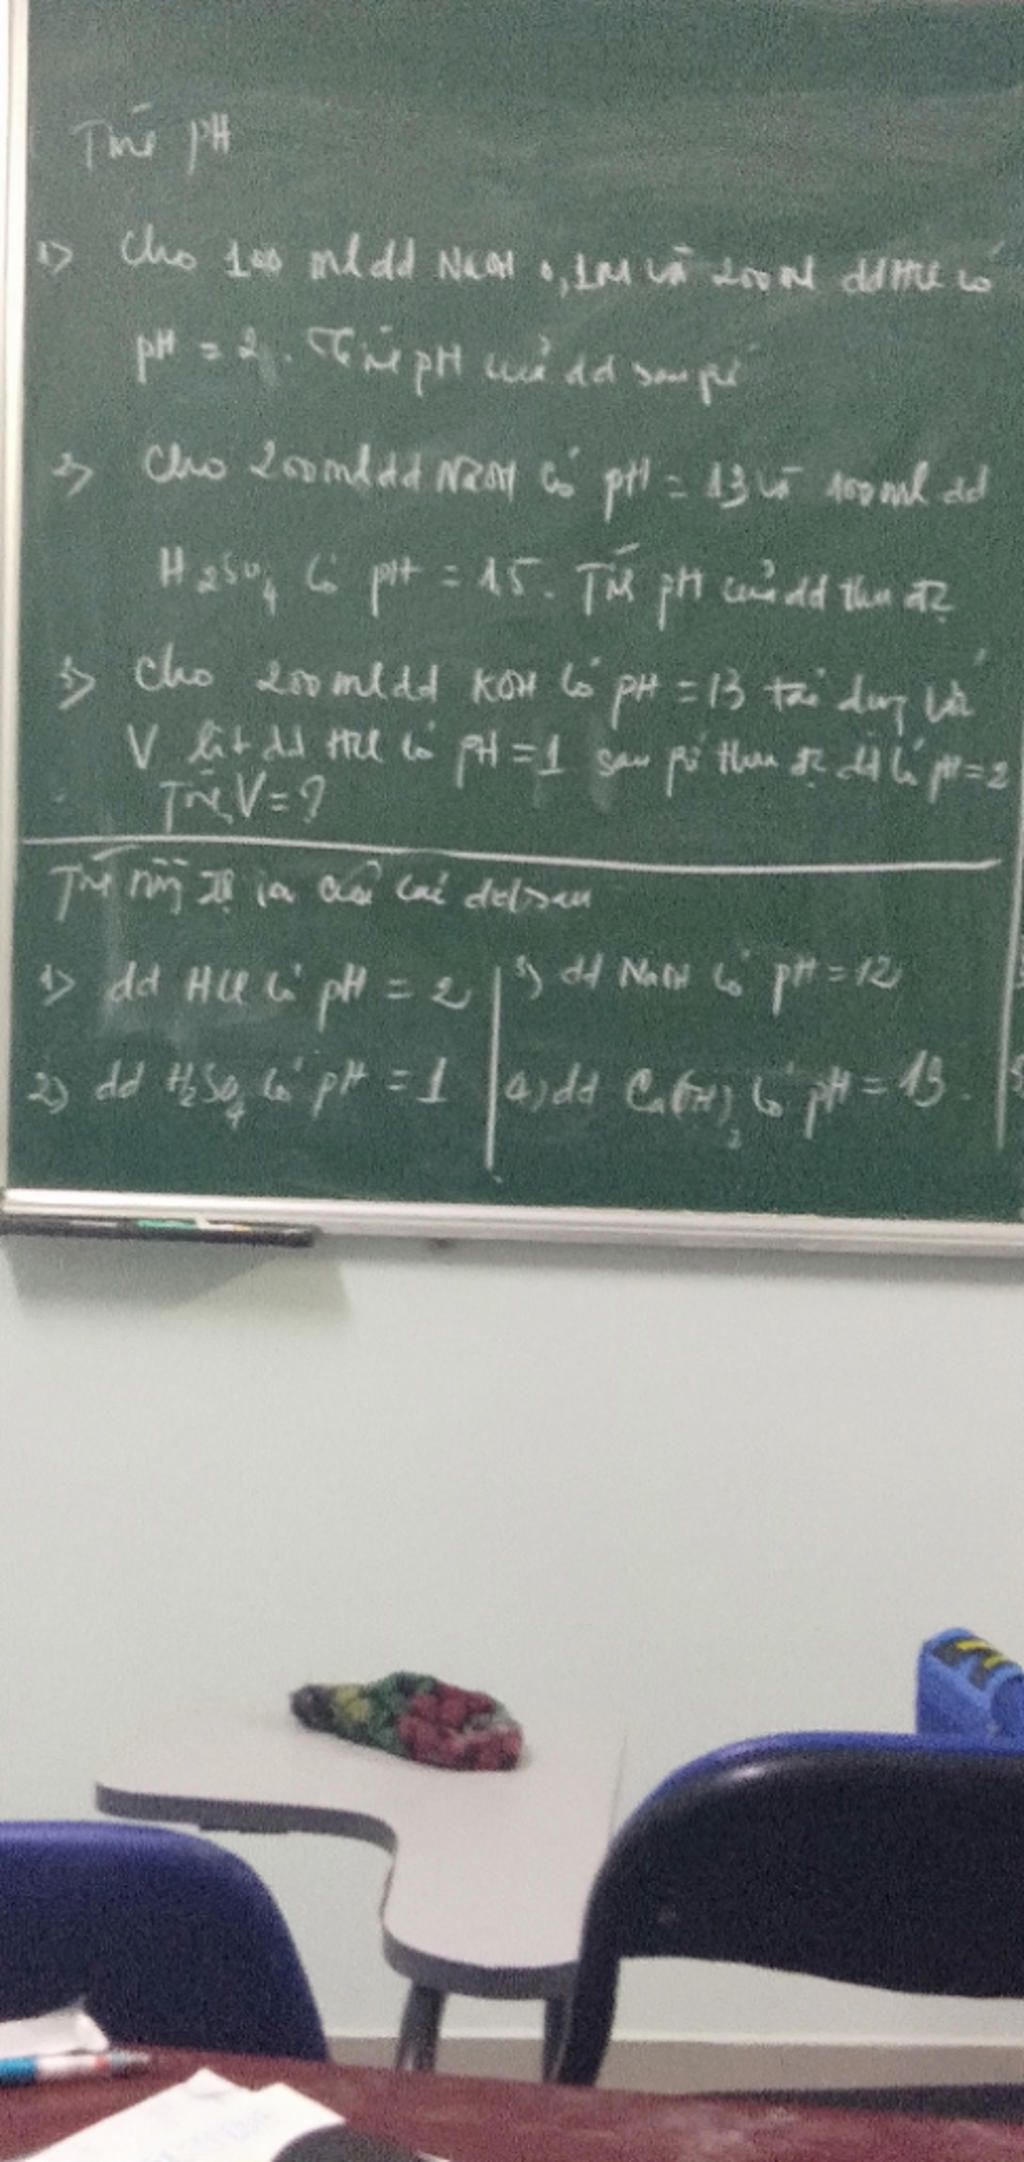 Tính pH
1) Cho 100 ml dd NaOH 0,1M và 200 ml dd HCl có
pH = 2. Tính pH của dd sau pứ
2) Cho 200ml dd NaOH có pH = 13 và 100 ml dd
H2SO4 có pH = 15. Tính pH của dd thu đc
3) Cho 200 ml dd KOH có pH = 13 tác dụng với
V lít dd HCl có pH = 1 sau pứ thu đc dd có pH = 2
Tính V = ?
Tính nồng độ ion của các dd sau
1) dd HCl có pH = 2
2) dd H2SO4 có pH = 1
3) dd NaOH có pH = 12
4) dd Ca(OH)2 có pH = 13.